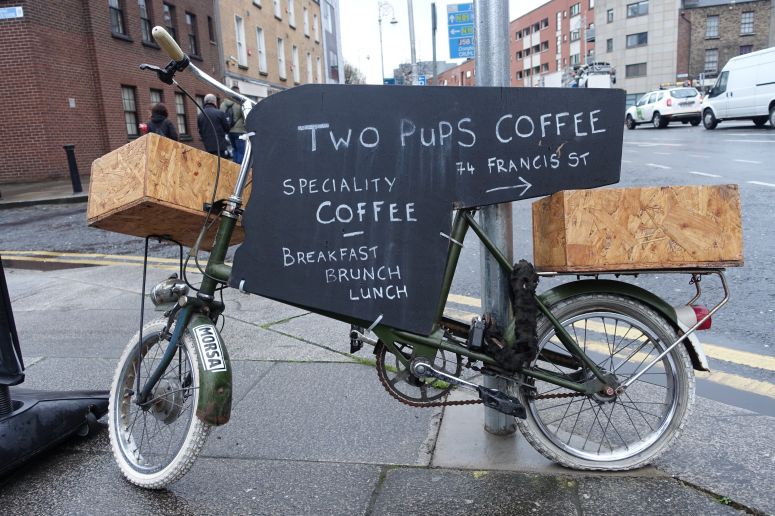 TWO PUPS COFFEE
74 FRANCIS ST
SPECIALITY
COFFEE
BREAKFAST
BRUNCH
LUNCH
MORSA